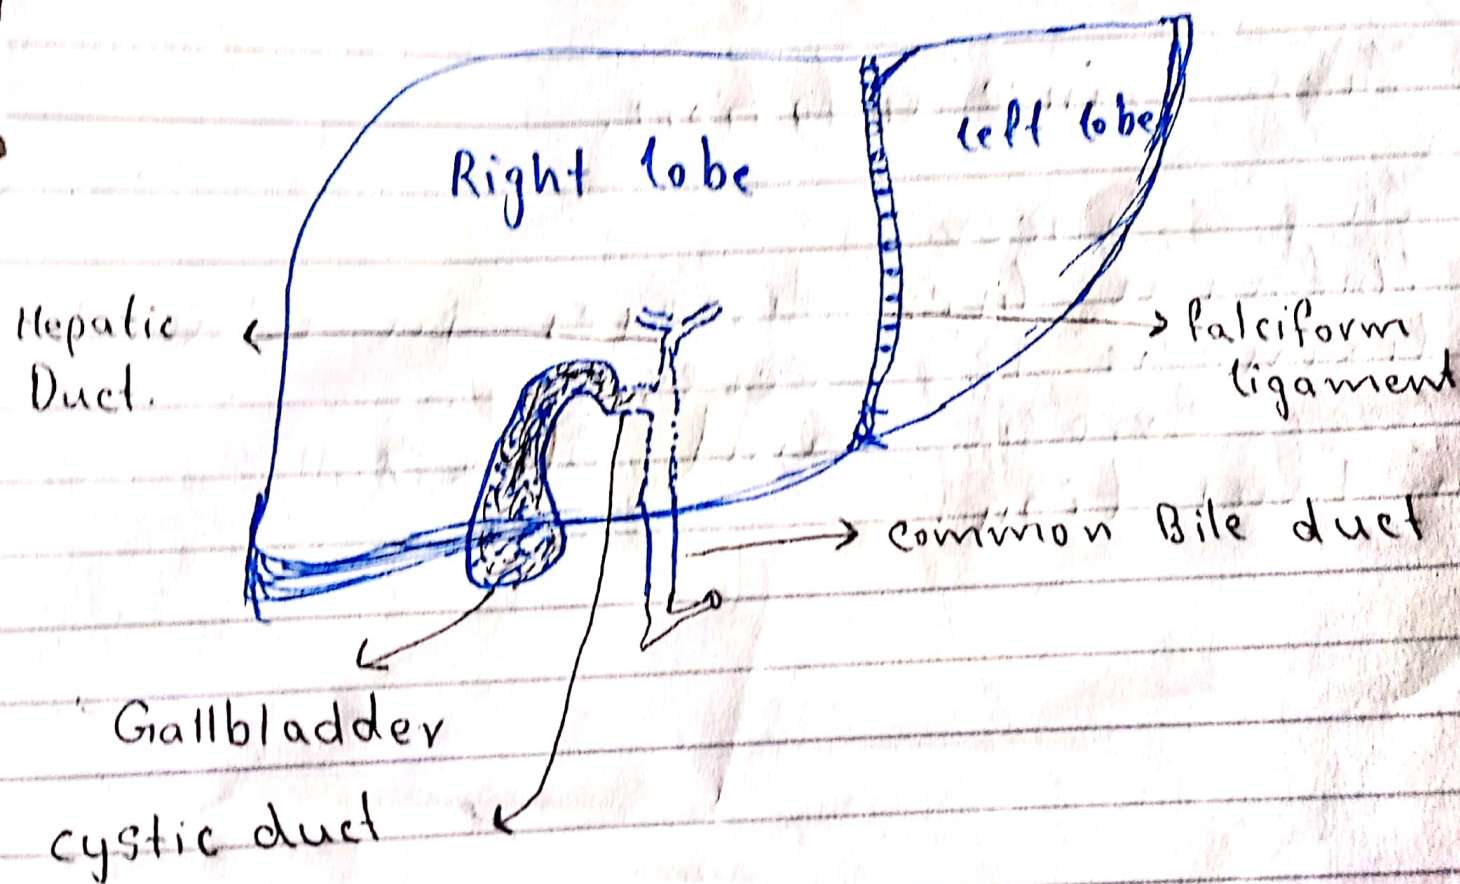 Right lobe
left lobe
Hepatic
Duct.
falciform
ligament
common Bile duct
Gallbladder
cystic duct